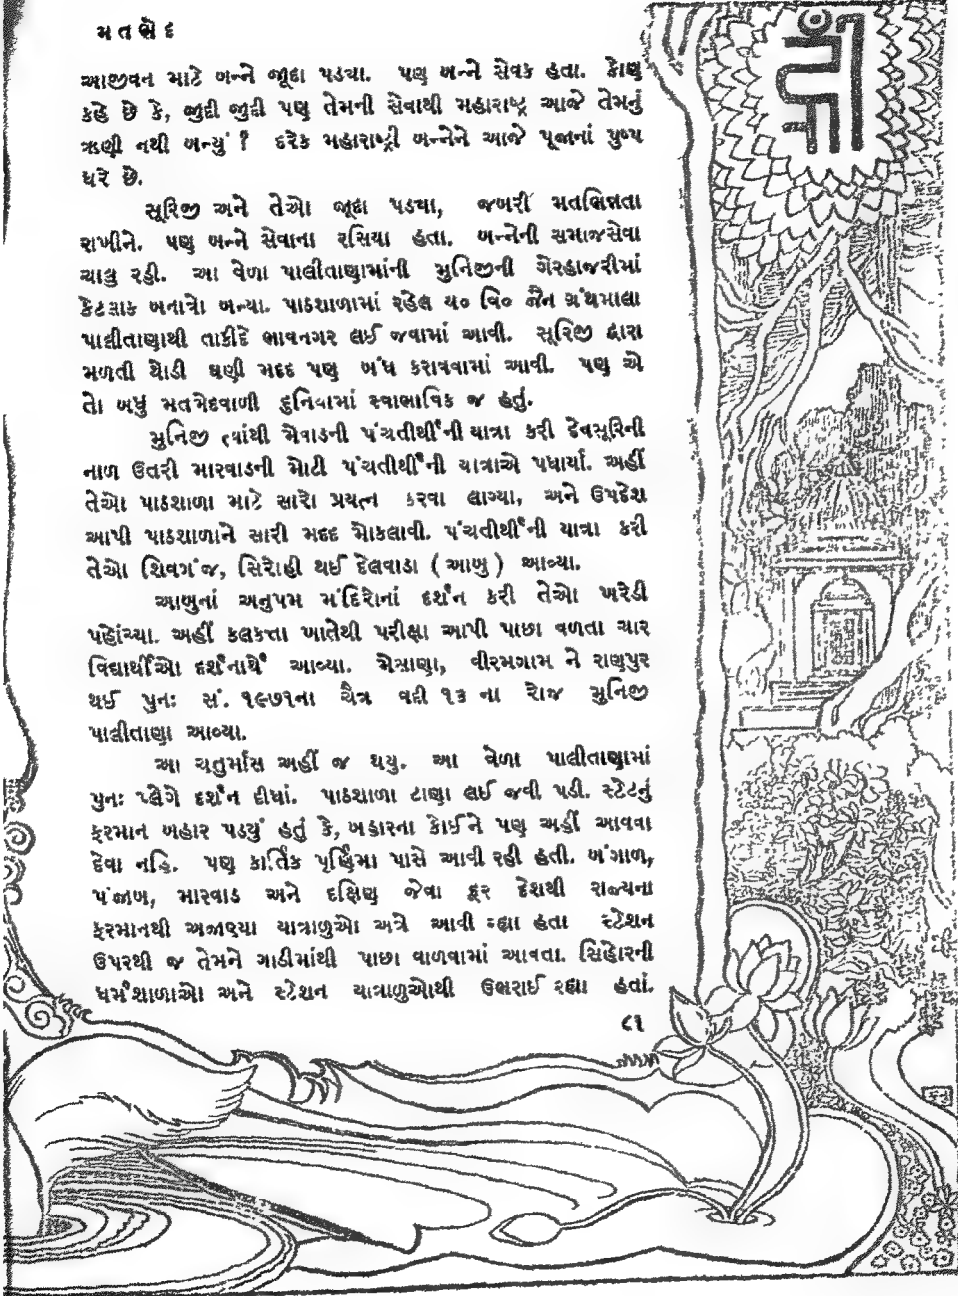 મતભેદ
આજીવન માટે બન્ને જૂદા પડયા. પણ બન્ને સેવક હતા. કોણ
કહે છે કે, જીદી જીદી પણ તેમની સેવાથી મહારાષ્ટ્ર આજે તેમનું
ઋણી નથી બન્યું ? દરેક મહારાષ્ટ્રી બન્નેને આજે પૂજાનાં પુષ્પ
ધરે છે.
સૂરિજી અને તેઓ જૂદા પડયા, જબરી મતભિન્નતા
રાખીને. પણ બન્ને સેવાના રસિયા હતા. બન્નેની સમાજસેવા
ચાલુ રહી. આ વેળા પાલીતાણામાંની મુનિજીની ગેરહાજરીમાં
કેટલાક બનાવો બન્યા. પાઠશાળામાં રહેલ ય૦ વિ૦ જૈન ગ્રંથમાલા
પાલીતાણાથી તાકીદે ભાવનગર લઈ જવામાં આવી. સૂરિજી દ્વારા
મળતી થોડી ઘણી મદદ પણ બંધ કરાવવામાં આવી. પણ એ
તો બધું મતભેદવાળી દુનિયામાં સ્વાભાવિક જ હતું.
મુનિજી ત્યાંથી મેવાડની પંચતીર્થીની યાત્રા કરી દેવસૂરિની
નાળ ઉતરી મારવાડની મોટી પંચતીર્થીની યાત્રાએ પધાર્યા. અહીં
તેઓ પાઠશાળા માટે સારો પ્રયત્ન કરવા લાગ્યા, અને ઉપદેશ
આપી પાઠશાળાને સારી મદદ મોકલાવી. પંચતીર્થીની યાત્રા કરી
તેઓ શિવગંજ, સિરોહી થઈ દેલવાડા ( આબુ ) આવ્યા.
આબુનાં અનુપમ મંદિરોનાં દર્શન કરી તેઓ ખરેડી
પહોંચ્યા. અહીં કલકત્તા ખાતેથી પરીક્ષા આપી પાછા વળતા ચાર
વિદ્યાર્થીઓ દર્શનાર્થે આવ્યા. મેત્રાણા, વીરમગામ ને રાણપુર
થઈ પુનઃ સં. ૧૯૭૧ના ચૈત્ર વદી ૧૩ ના રોજ મુનિજી
પાલીતાણા આવ્યા.
આ ચતુર્માસ અહીં જ થયુ. આ વેળા પાલીતાણામાં
પુનઃ પ્લેગે દર્શન દીધાં. પાઠશાળા ટાણા લઈ જવી પડી. સ્ટેટનું
ફરમાન બહાર પડયું હતું કે, બહારના કોઈને પણ અહીં આવવા
દેવા નહિ. પણ કાર્તિક પૂર્ણિમા પાસે આવી રહી હતી. બંગાળ,
પંજાબ, મારવાડ અને દક્ષિણ જેવા દૂર દેશથી રાજ્યના
ફરમાનથી અજાણ્યા યાત્રાળુઓ અત્રે આવી રહ્યા હતા સ્ટેશન
ઉપરથી જ તેમને ગાડીમાંથી પાછા વાળવામાં આવતા. સિહોરની
ધર્મશાળાઓ અને સ્ટેશન યાત્રાળુઓથી ઉભરાઈ રહ્યા હતાં.
૮૧